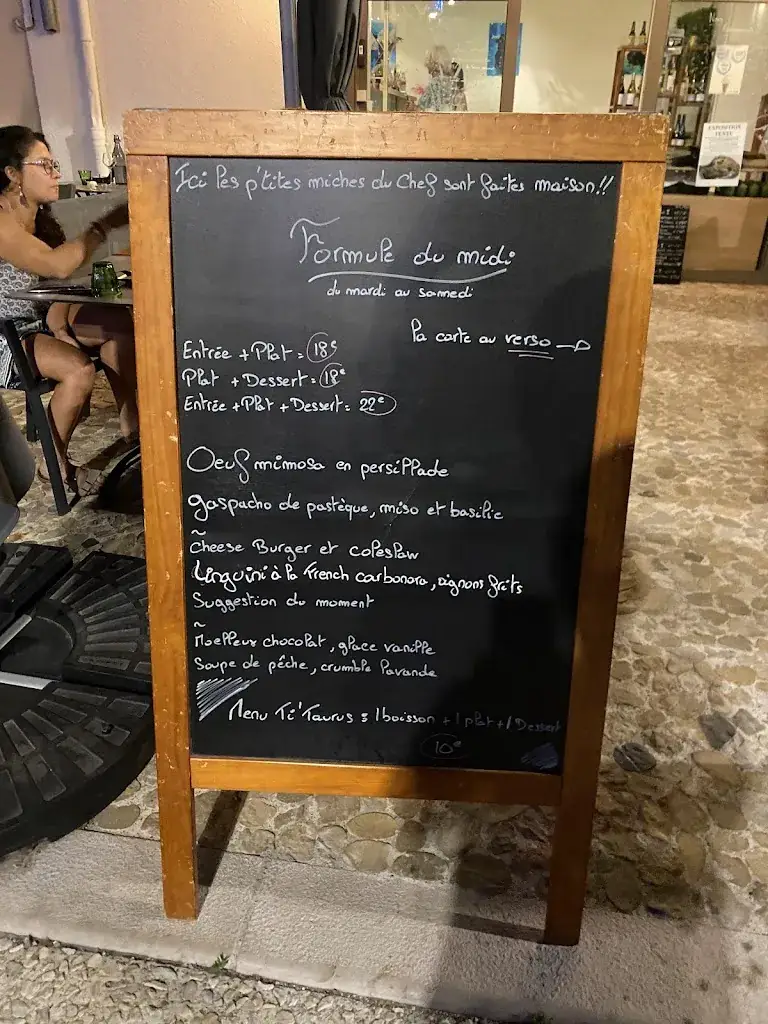 Ici les p'tites miches du Chef sont faites maison!!
Formule du midi
du mardi au samedi
la carte au verso →
Entrée + Plat = 18€
Plat + Dessert = 18€
Entrée + Plat + Dessert = 22€
Oeuf mimosa en persillade
gaspacho de pastèque, miso et basilic
~
Cheese Burger et coleslaw
Linguini à la French carbonara, oignons frits
Suggestion du moment
~
Moelleux chocolat, glace vanille
Soupe de pêche, crumble lavande
Menu Ti'Taurus = 1 boisson + 1 plat + 1 Dessert
10€
EXPOSITION
VENTE